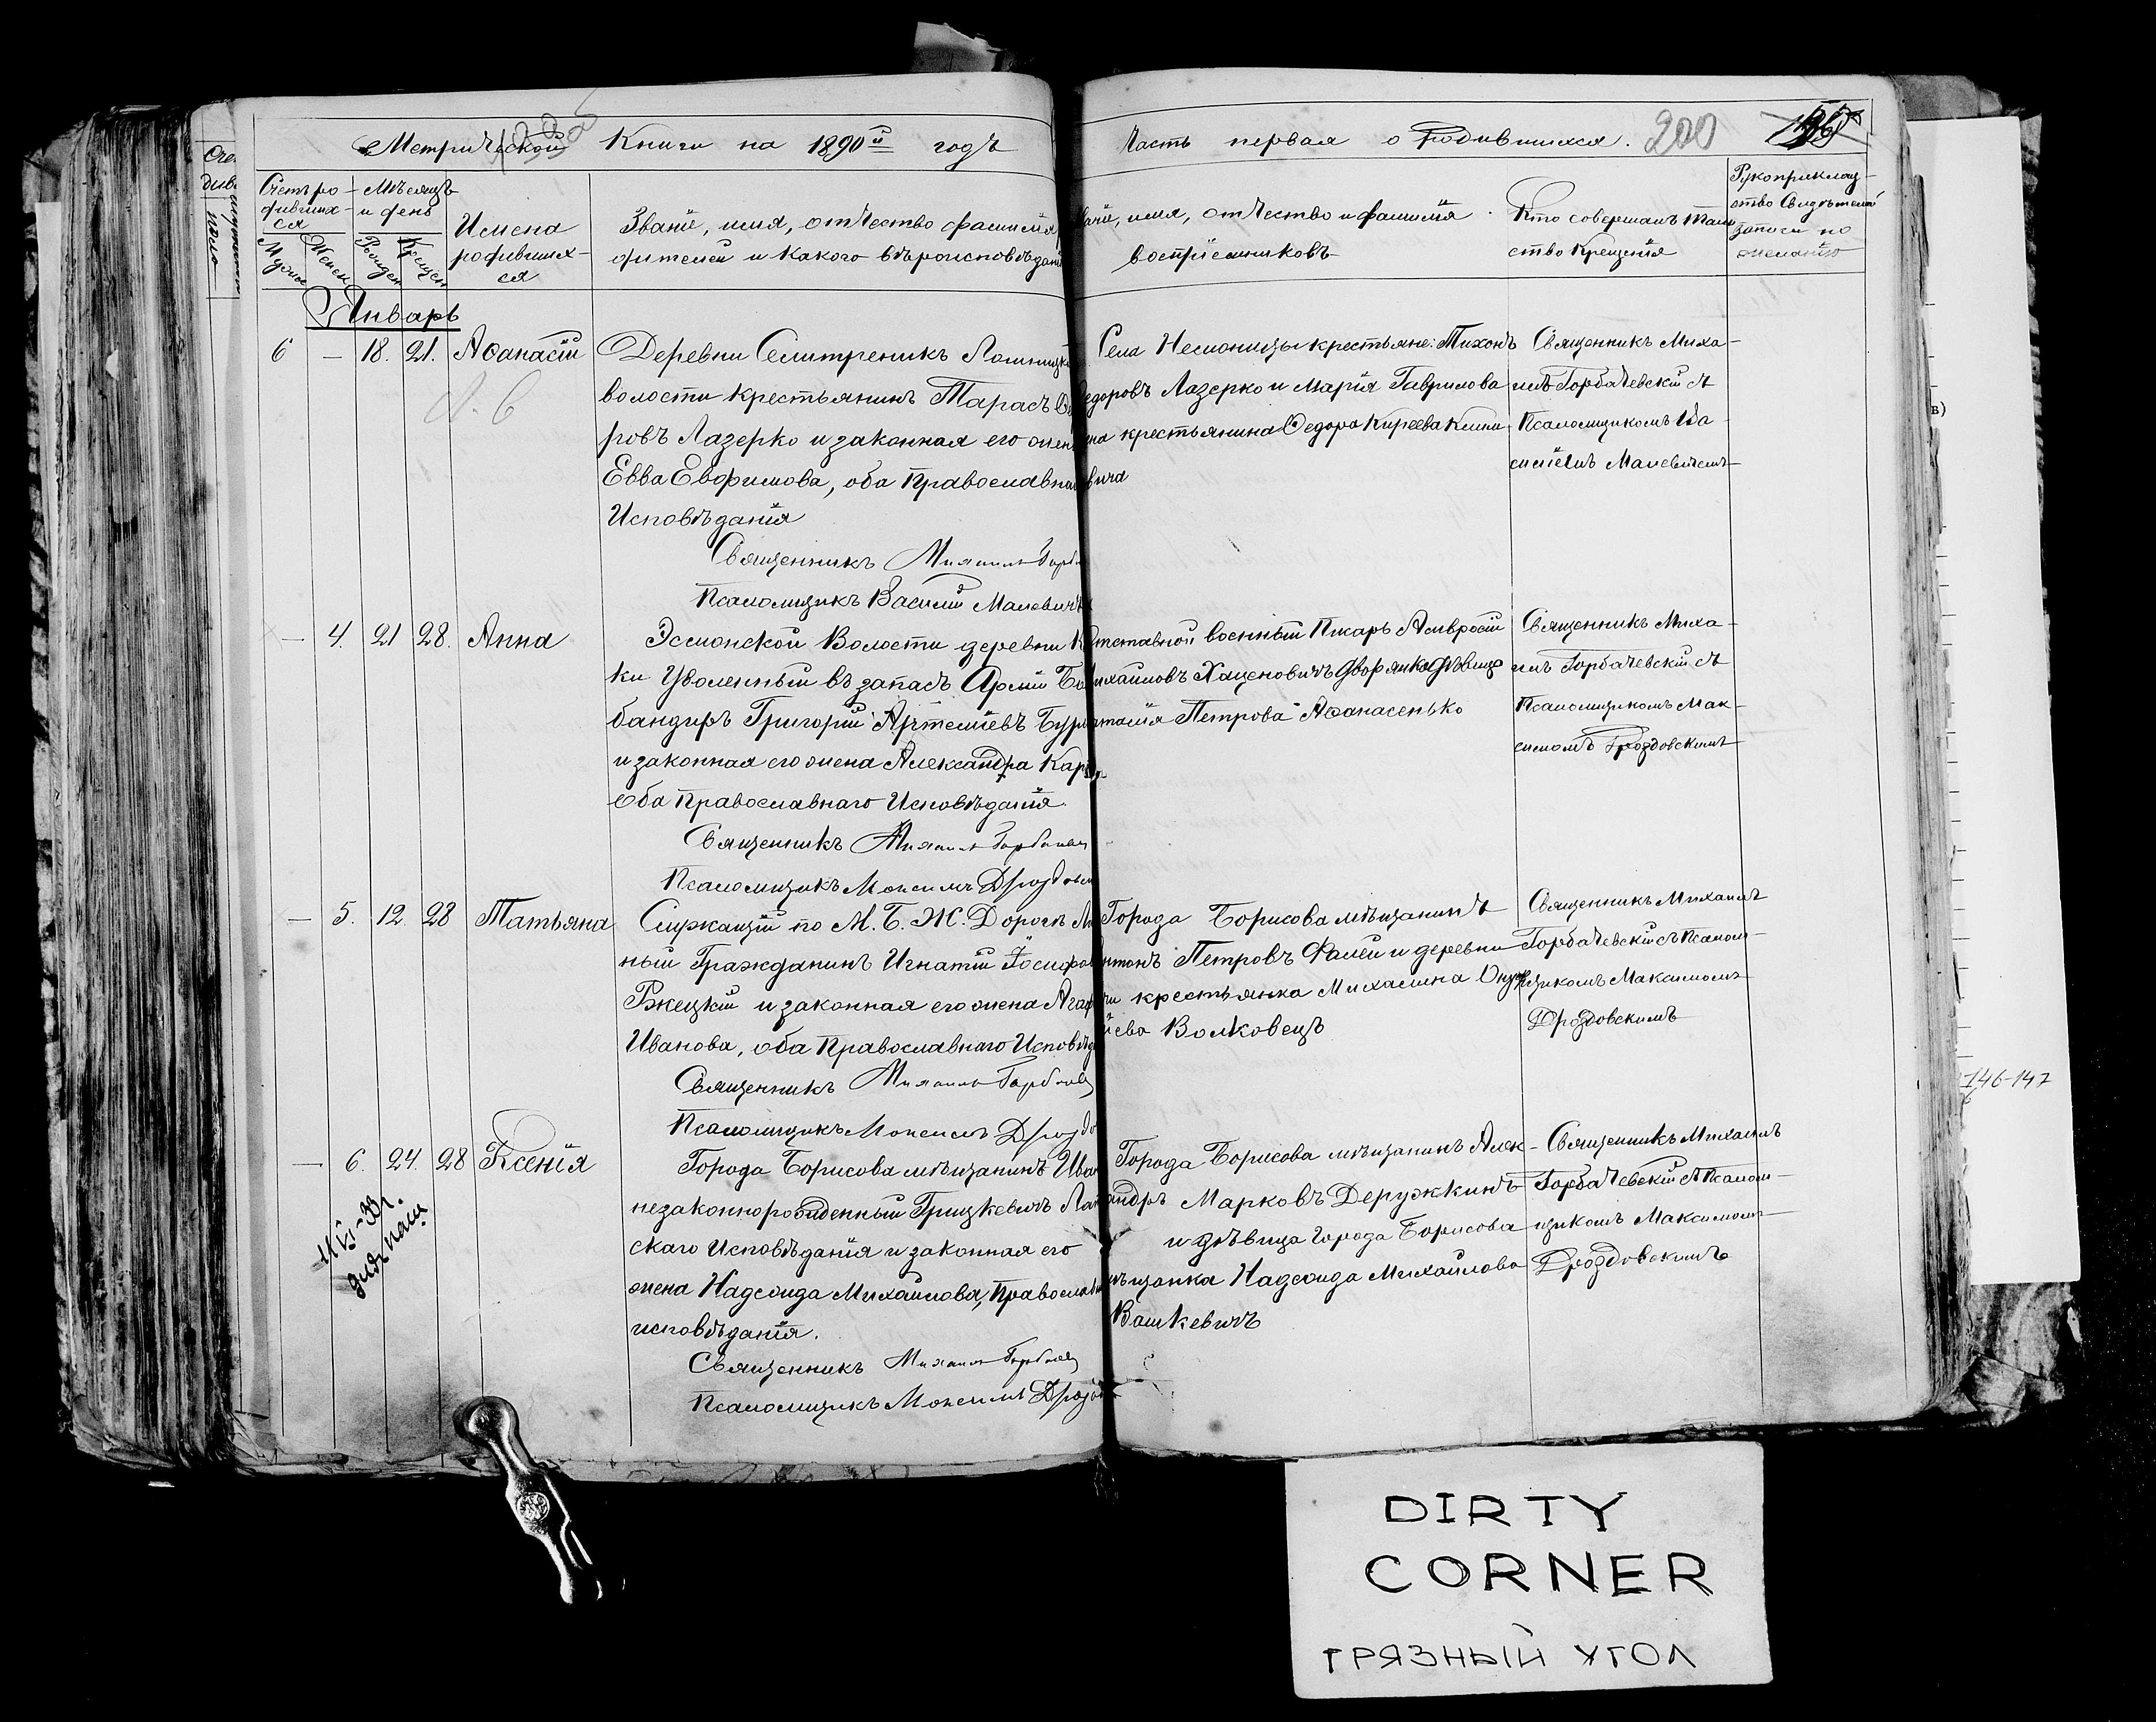 Метрической Книги на 1890й годъ
Часть первая о родившихся. 200
Счетъ ро-
дивших-
ся
Мужск
Женск
Мѣсяцъ
и день
Рожден
Крещен
Имена
родивших-
ся
Званіе, имя, отчество фамилія
дителей и какого вѣроисповѣдані
ваніе, имя, отчество и фамилія
воспріемниковъ
Кто совершалъ таин
ство крещенія
Рукоприклад-
ство Свидѣтелей
записи по
желанію
Январь
6 — 18. 21. Аѳанасій
Деревни Селитреникъ Лошницк
волости крестьянинъ Тарасъ Ѳе
ровъ Лазерко и законная его жен
Евва Евфимова, оба Православна
Исповѣданія
Священникъ Михаилъ Горб
Псаломщикъ Василій Малевичъ
Села Неманицы крестьяне: Тихонъ
едоровъ Лазерко и Марія Гаврилова
на крестьянина Ѳедора Киреева Клим
вича
Священникъ Миха-
илъ Горбачевскій съ
Псаломщикомъ Ва-
силіемъ Малевичемъ
— 4. 21 28. Анна
Эсмонской Волости деревни
ки Уволенный въ запасъ Арміи
бандиръ Григорій Артеміевъ Бур
и законная его жена Александра Кар
оба Православнаго Исповѣданія.
Священникъ Михаилъ Горбачев
Псаломщикъ Максимъ Дроздовс
тставной военный Писарь Амвросій
ихаиловъ Хаценовичъ дворянка дѣвица
аталія Петрова Аѳанасенько
Священникъ Миха-
илъ Горбачевскій съ
Псаломщикомъ Мак-
симомъ Дроздовскимъ
— 5. 12. 28 Татьяна
Служащій по М. Б. Ж. Дорогѣ
ный Гражданинъ Игнатій Іосифов
Ржецкій и законная его жена Агаф
Иванова, оба Православнаго Исповѣд
Священникъ Михаилъ Горбачев
Псаломщикъ Максимъ Дроздо
Города Борисова мѣщанинъ
нтонъ Петровъ Фалей и деревни
чи крестьянка Михалина
іева Волковецъ
Священникъ Михаилъ
Горбачевскій съ Псалом-
щикомъ Максимомъ
Дроздовскимъ
— 6. 24. 28 Ксенія
Города Борисова мѣщанинъ Ива
незаконнорожденный Грицкевичъ Лат
скаго Исповѣданія и законная его
жена Надежда Михаилова, Православн
исповѣданія.
Священникъ Михаилъ Горбачев
Псаломщикъ Максимъ Дроздо
Города Борисова мѣщанинъ Алек-
андръ Марковъ Деружкинъ
и дѣвица Города Борисова
мѣщанка Надежда Михайлова
Вашкевичъ
Священникъ Михаилъ
Горбачевскій съ Псалом-
щикомъ Максимомъ
Дроздовскимъ
146-147
DIRTY
CORNER
ГРЯЗНЫЙ УГОЛ